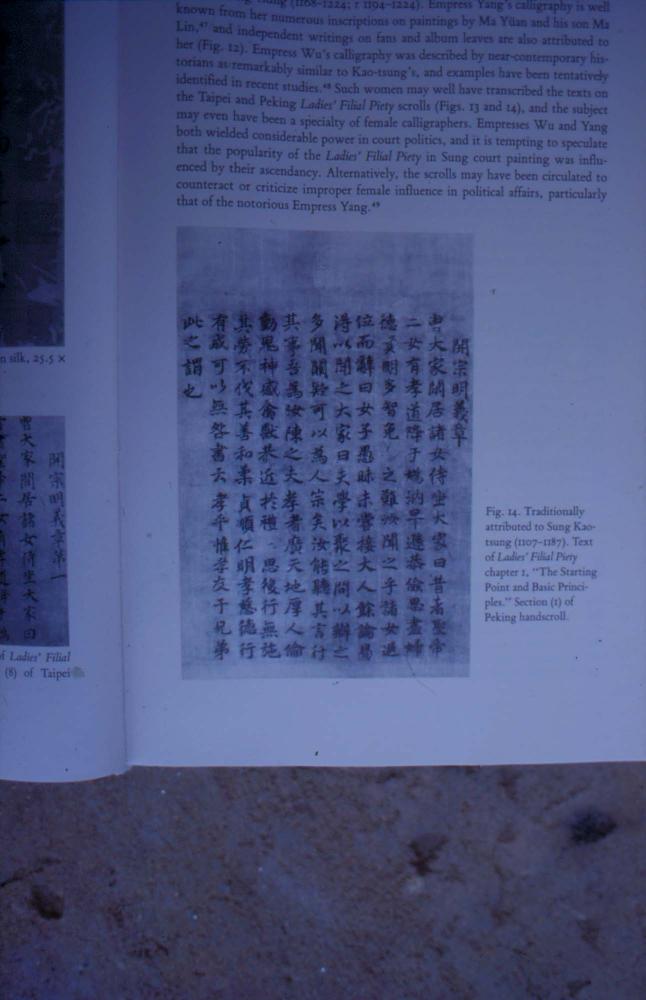 n silk, 25.5 ×
開宗明義章第一
曹大家閒居諸女侍坐大家曰
of Ladies' Filial
(8) of Taipei
(1168–1224; r 1194–1224). Empress Yang's calligraphy is well
known from her numerous inscriptions on paintings by Ma Yüan and his son Ma
Lin,⁴⁷ and independent writings on fans and album leaves are also attributed to
her (Fig. 12). Empress Wu's calligraphy was described by near-contemporary his-
torians as remarkably similar to Kao-tsung's, and examples have been tentatively
identified in recent studies.⁴⁸ Such women may well have transcribed the texts on
the Taipei and Peking Ladies' Filial Piety scrolls (Figs. 13 and 14), and the subject
may even have been a specialty of female calligraphers. Empresses Wu and Yang
both wielded considerable power in court politics, and it is tempting to speculate
that the popularity of the Ladies' Filial Piety in Sung court painting was influ-
enced by their ascendancy. Alternatively, the scrolls may have been circulated to
counteract or criticize improper female influence in political affairs, particularly
that of the notorious Empress Yang.⁴⁹
開宗明義章
曹大家閒居諸女侍坐大家曰昔者聖帝
二女有孝道降于媯汭卑遜恭儉思盡婦
德賢明多智免之難汝聞之乎諸女退
位而辭曰女子愚昧未嘗接大人餘論曷
得以聞之大家曰夫學以聚之問以辯之
多聞闕疑可以為人宗矣汝能聽其言行
其事吾為汝陳之夫孝者廣天地厚人倫
動鬼神感禽獸恭近於禮思後行無施
其勞不伐其善和柔貞順仁明孝慈德行
有成可以無咎書云孝乎惟孝友于兄弟
此之謂也
Fig. 14. Traditionally
attributed to Sung Kao-
tsung (1107–1187). Text
of Ladies' Filial Piety
chapter 1, "The Starting
Point and Basic Princi-
ples." Section (1) of
Peking handscroll.